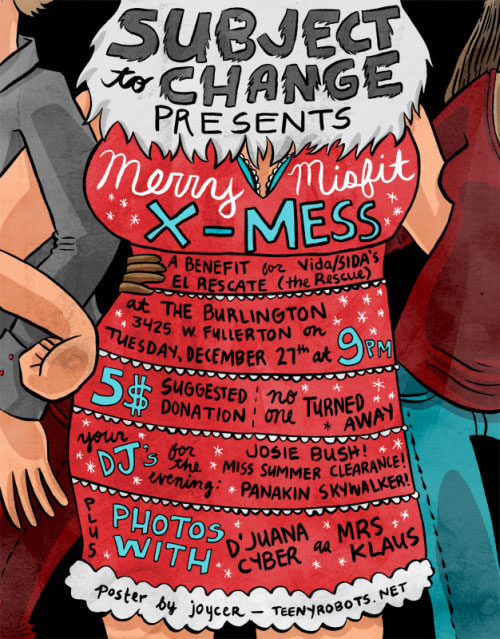 SUBJECT
to CHANGE
PRESENTS
Merry Misfit
X-MESS
A BENEFIT for Vida/SIDA'S
EL RESCATE (the Rescue)
at THE BURLINGTON
3425 W. FULLERTON on
TUESDAY, DECEMBER 27th at 9PM
5$ SUGGESTED DONATION no one TURNED AWAY
your DJ's for the evening:
JOSIE BUSH!
MISS SUMMER CLEARANCE!
PANAKIN SKYWALKER!
PLUS
PHOTOS WITH
D'JUANA CYBER as MRS KLAUS
poster by joycer - TEENYROBOTS.NET